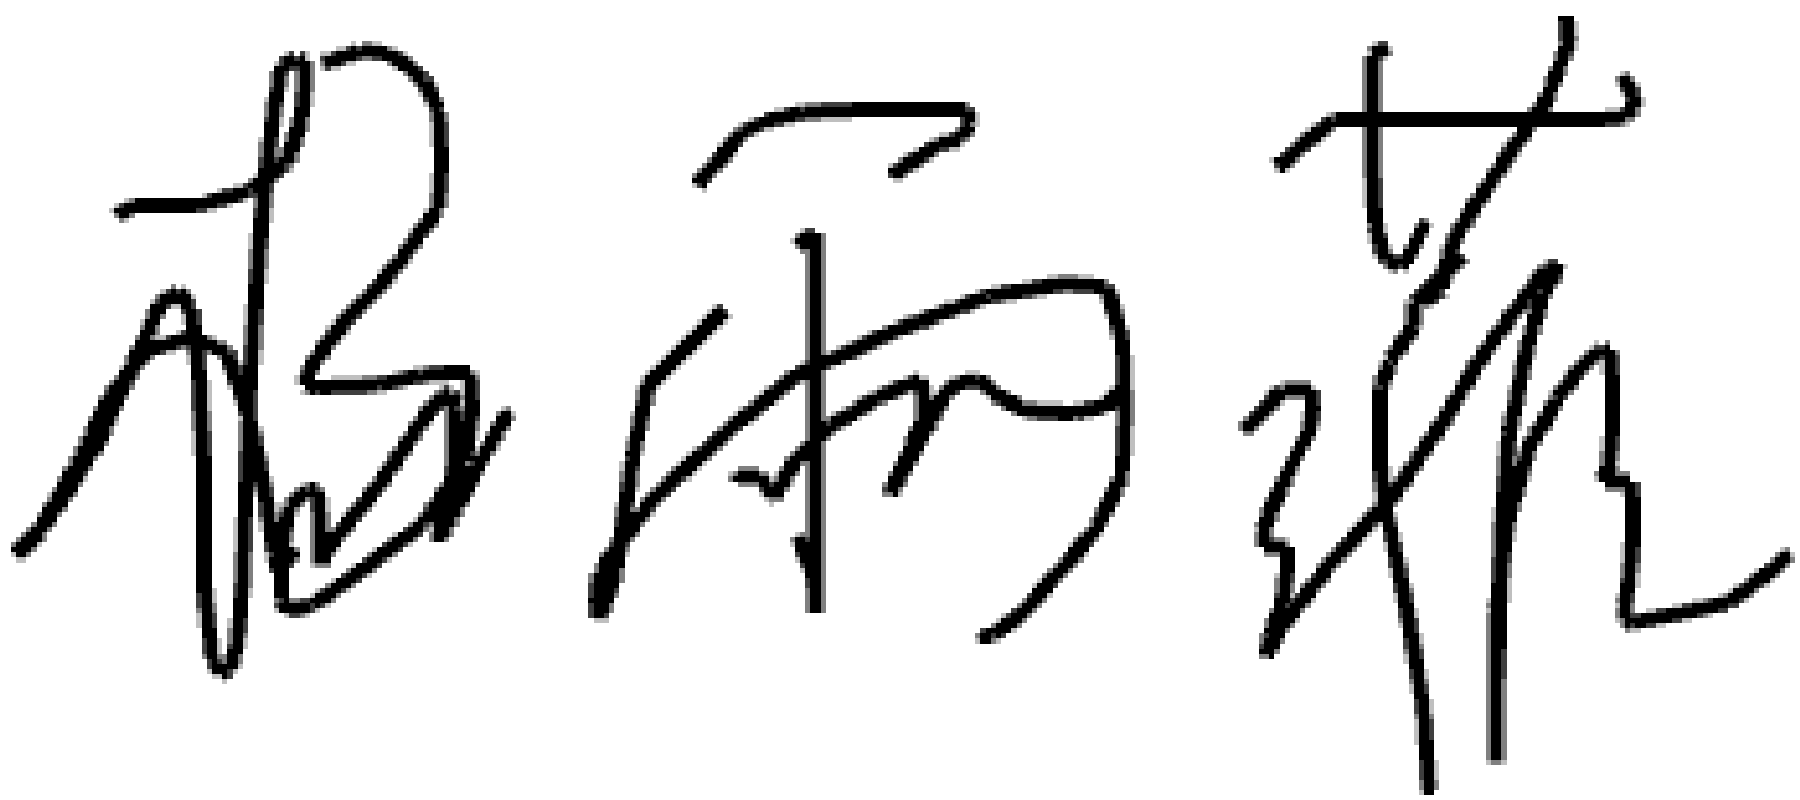 杨雨菲